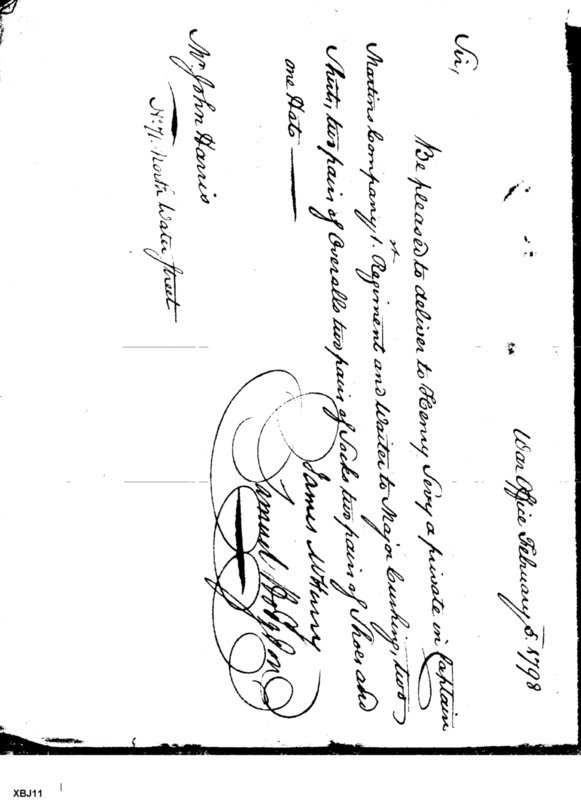 War Office February 5. 1798
Sir,
Be pleased to deliver to Henry Levy a private in Captain
Martins Company 1st. Regiment and Waiter to Major Cushing, two
Shirts, two pair of Overalls two pair of Socks two pair of Shoes and
one Hat
James McHenry
Samuel Hodgdon
Mr. John Harris
No. 71. North Water Street
XBJ11